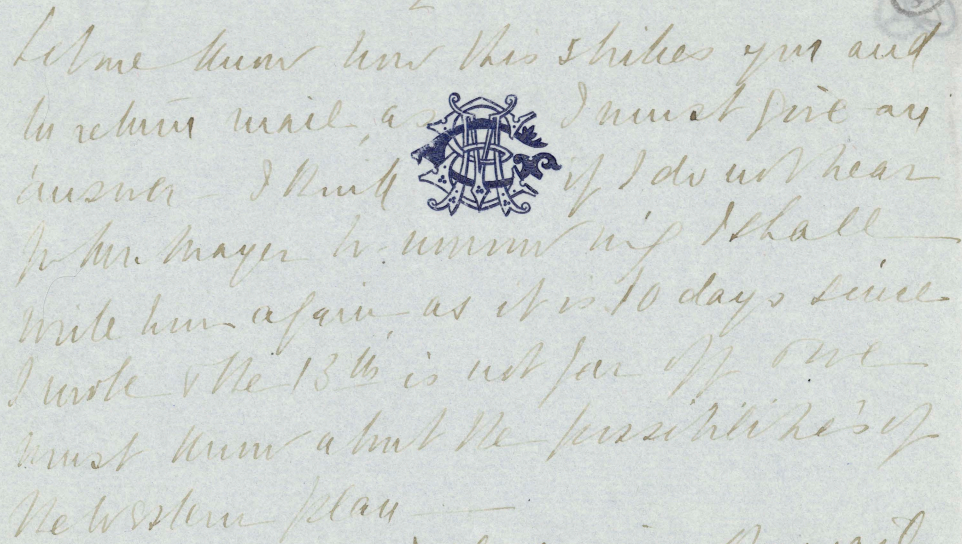 Let me know how this strikes you and
by return mail, as I must give an
answer I think if I do not hear
fr Mr. Mayer to-morrow I shall
write him again, as it is 10 days since
I wrote & the 13th is not far off one
must know about the possibilities of
the Western plan —